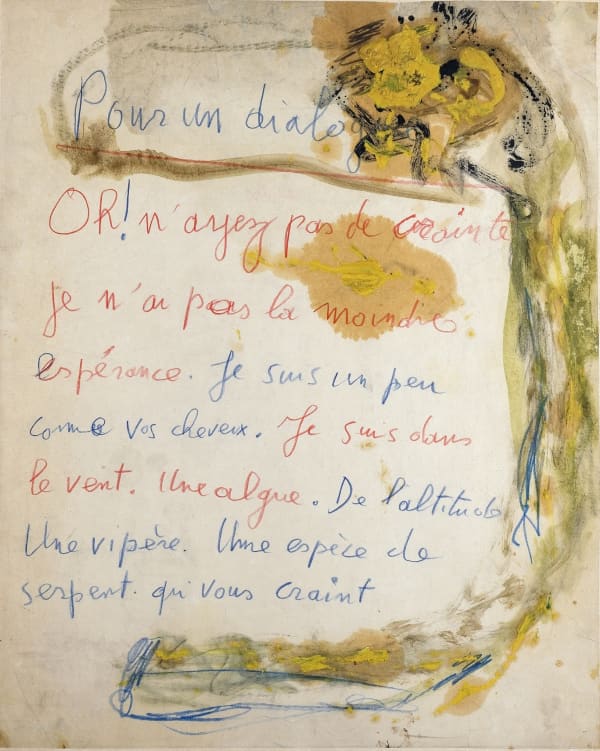 Pour un dialog
Oh! n'ayez pas de crainte
je n'ai pas la moindre
espérance. Je suis un peu
comme vos cheveux. Je suis dans
le vent. Une algue. De l'altitude
Une vipère. Une espèce de
serpent. qui vous craint